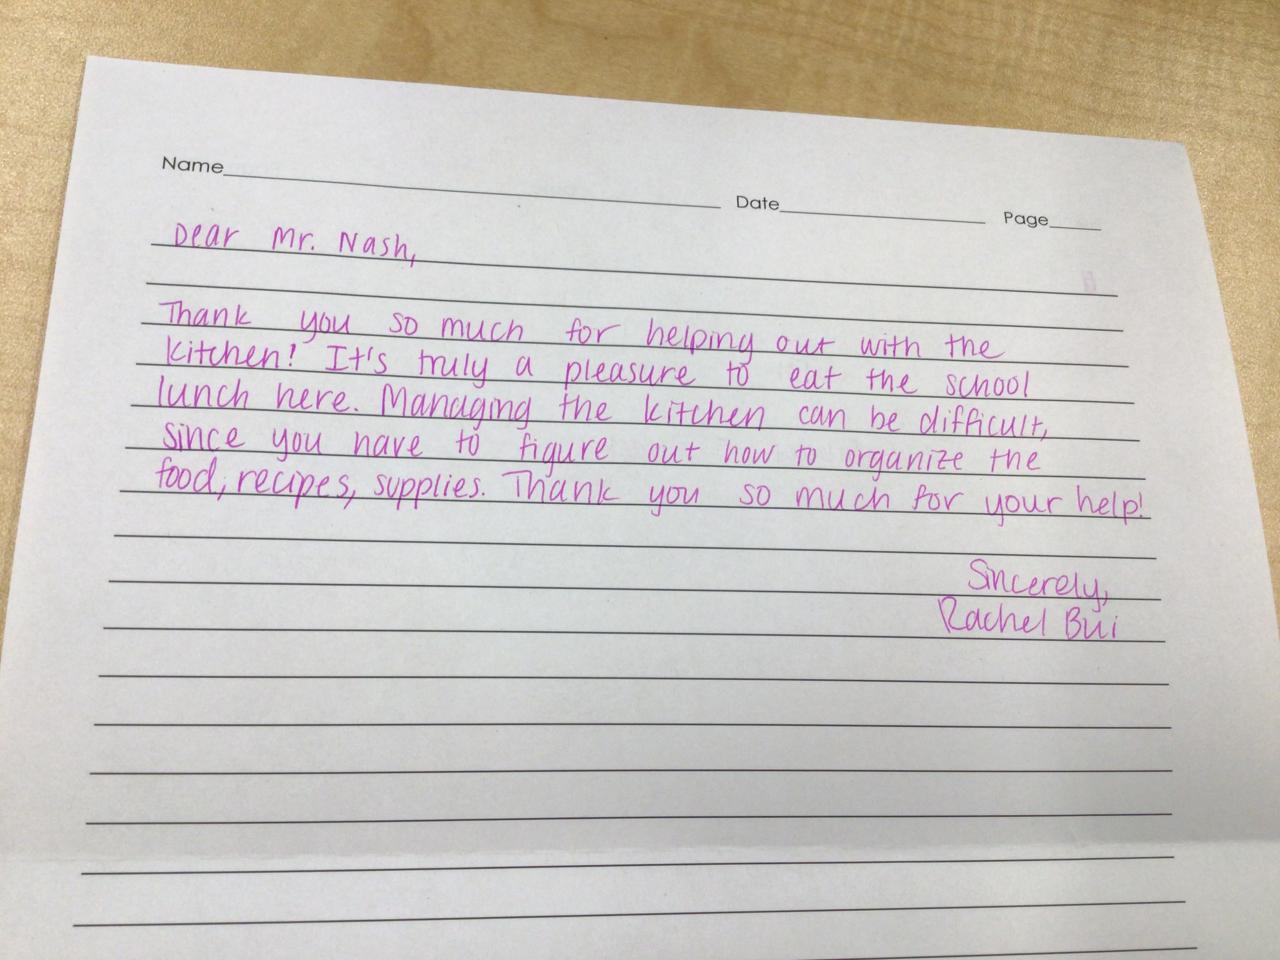 Name Date Page
Dear Mr. Nash,
Thank you so much for helping out with the
kitchen! It's truly a pleasure to eat the school
lunch here. Managing the kitchen can be difficult,
since you have to figure out how to organize the
food, recipes, supplies. Thank you so much for your help!
Sincerely,
Rachel Bui